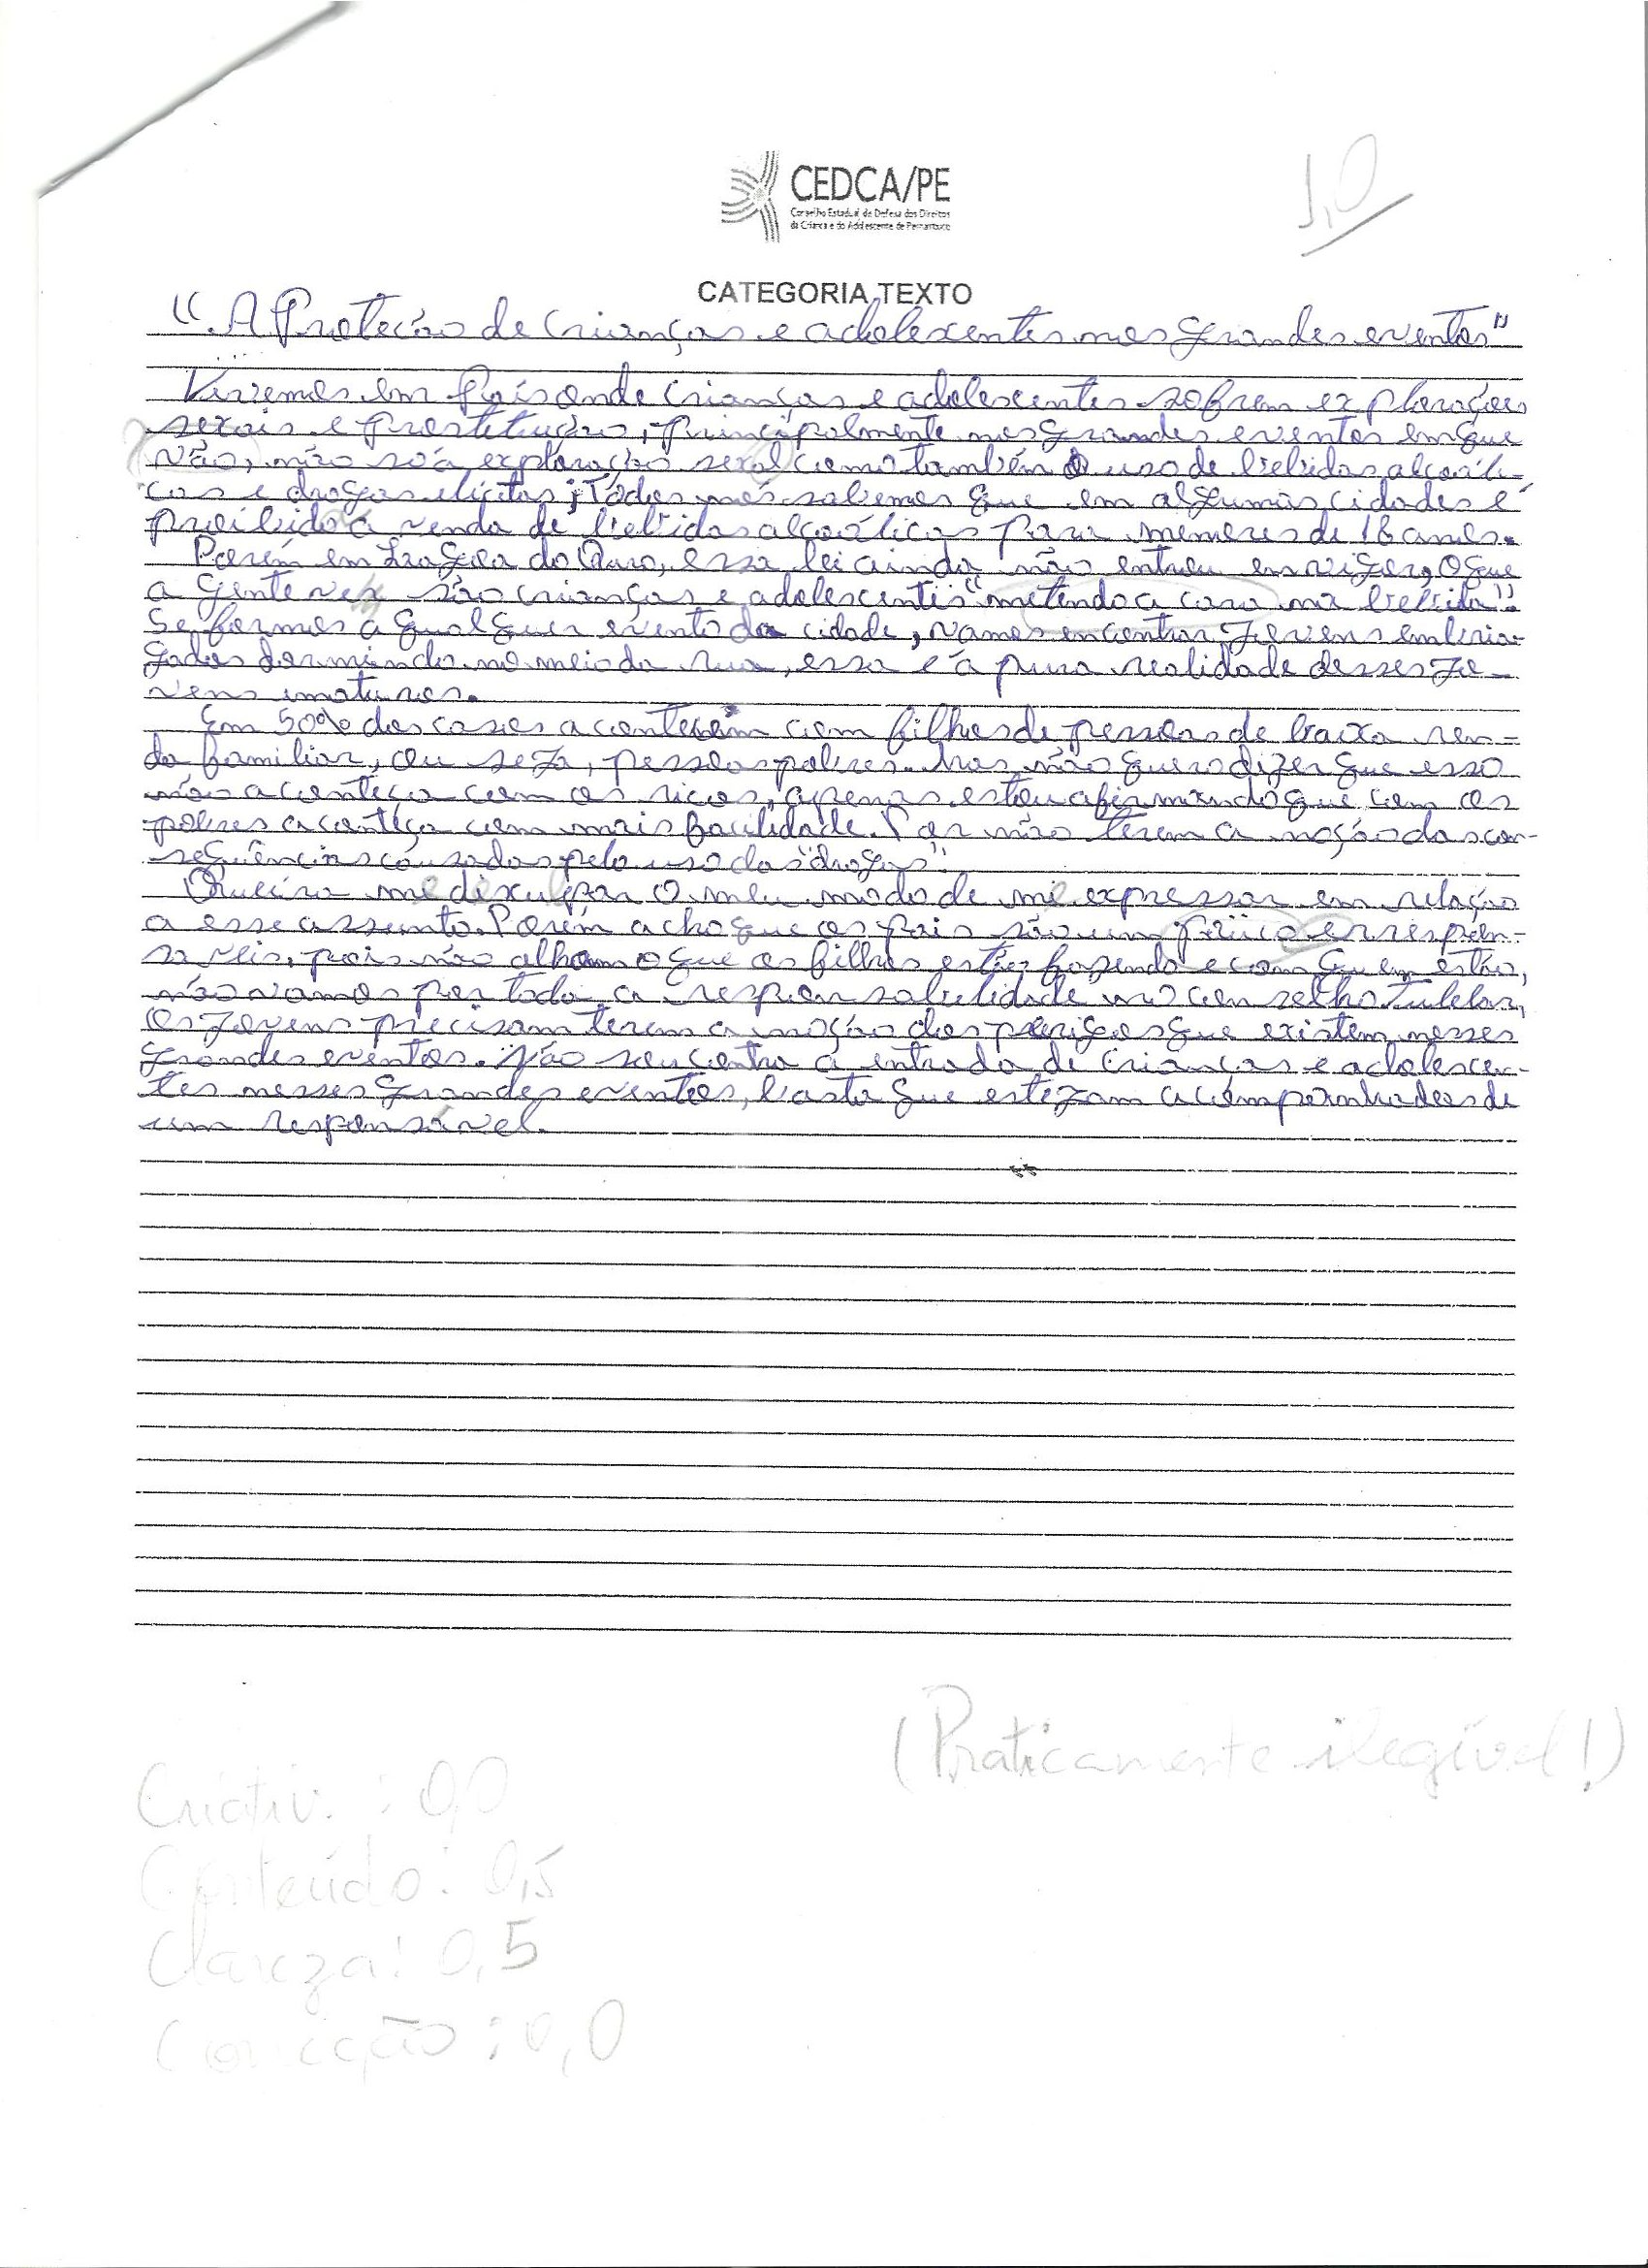 CEDCA/PE
Conselho Estadual de Defesa dos Direitos
da Criança e do Adolescente de Pernambuco
1,0
CATEGORIA TEXTO
"A Proteção de crianças e adolexentes nos grandes eventos"
Vivemos em País onde crianças e adolescentes sofrem explorações
sexais e prostituição, principalmente nos grandes eventos em que
vão, não só a exploração sexal como também o uso de bebidas alcoóli-
cas e drogas elícitas; Todos nós sabemos que em algumas cidades é
proíbido a venda de bebidas alcoólicas para menores de 18 anos.
Porém em Lagoa do Ouro, essa lei ainda não entrou em vigor, O que
a gente vex são crianças e adolescentis "metendo a cara na bebida".
Se formos a qualquer evento da cidade, vamos encontrar jovens embria-
gados dormindo no meio da rua, essa é a pura realidade desses jo-
vens imaturos.
Em 50% dos casos acontecem com filhos de pessoas de baixa ren-
da familiar, ou seja, pessoas pobres. Mas não quero dizer que esso
não aconteça com os ricos, apenas estou afirmando que com os
pobres aconteça com mais facilidade. Por não terem a noção das con-
seqüências cáusadas pelo uso das "drogas".
Queira me dixulpar O meu modo de me expressar em relação
a esse assunto. Porém acho que os pais são um errespon-
saveis, pois não olham o que os filhos estão fazendo e com quem estão,
não vamos por toda a responsabilidade no conselho Tutelar,
Os Jovens precisam terem a noção dos perigos que existem nesses
grandes eventos. Não sou contra a entrada de crianças e adolescen-
tes nesses grandes eventos, basta que estejam acompanhados de
um responsável.
(Praticamente ilegível!)
Criativ. : 0,0
Conteúdo: 0,5
Clareza: 0,5
Correcção: 0,0